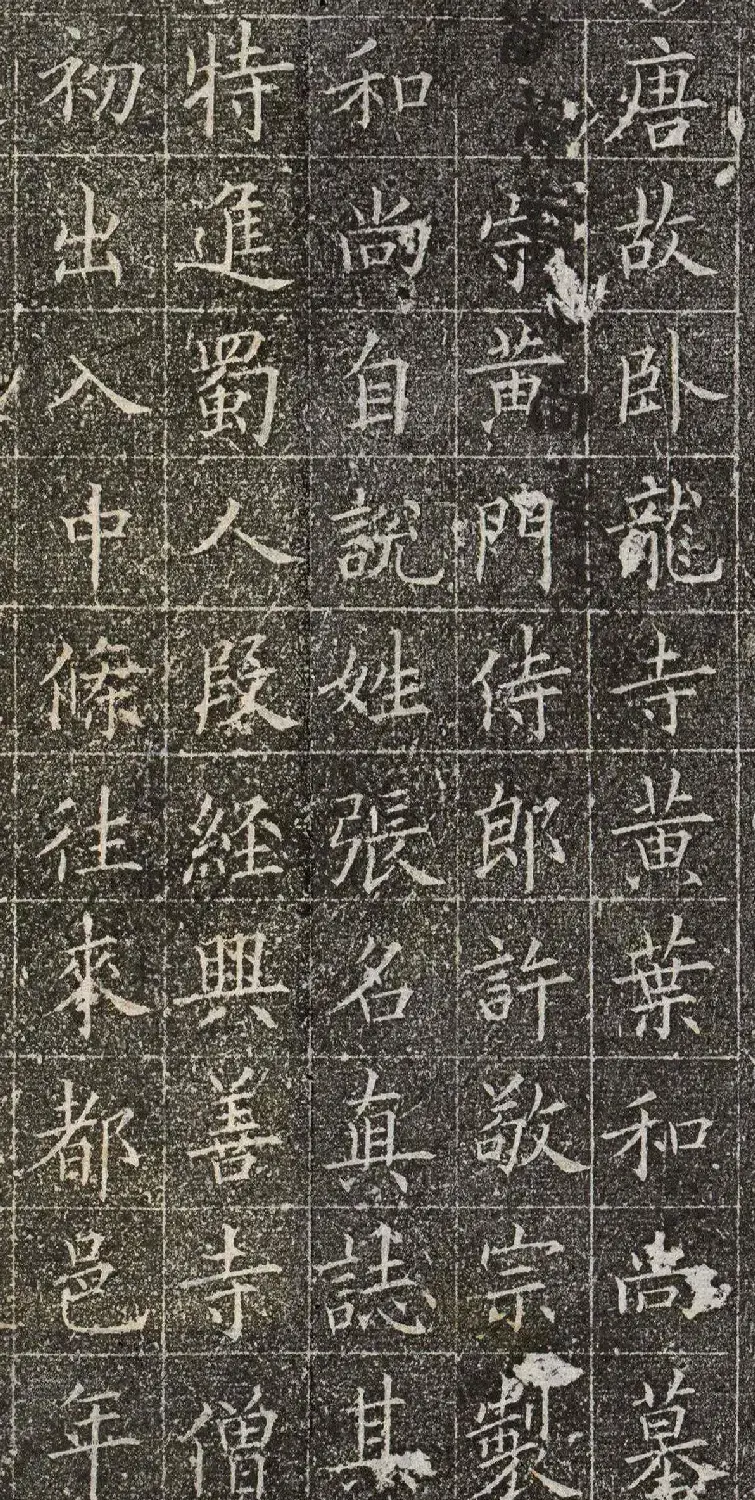 唐故卧龍寺黄葉和尚墓
守黄門侍郎許敬宗製
和尚自說姓張名真誌其
特進蜀人段經興善寺僧
初出入中條往來都邑年